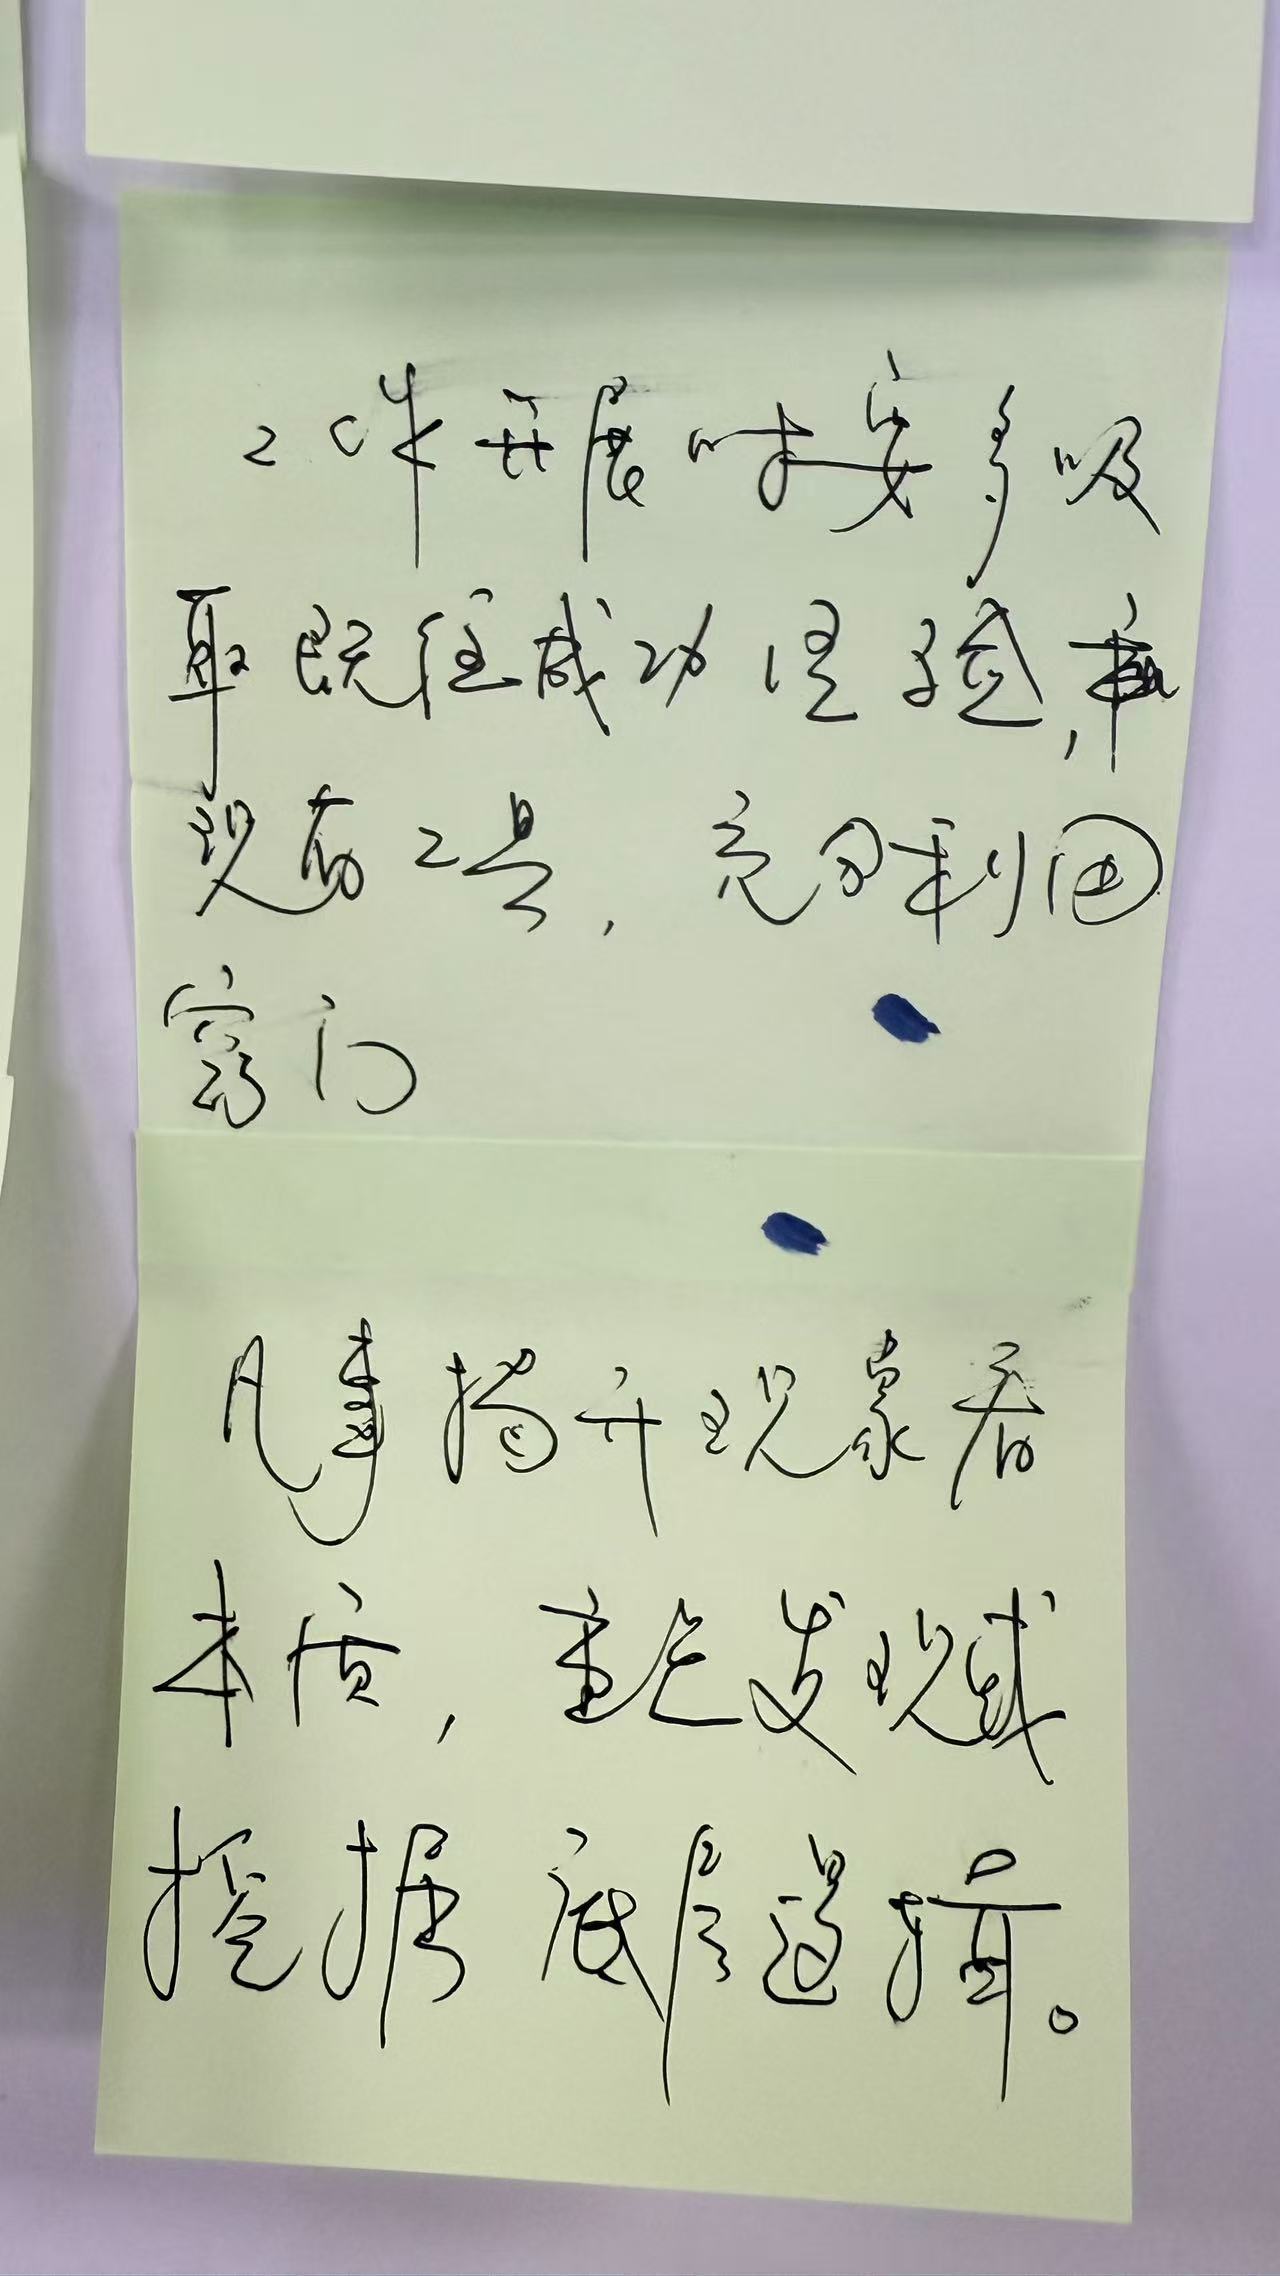 工作开展时要多吸
取既往成功经验,
现有工具,充分利用
窍门
凡事揭开现象看
本质,重点发现或
挖掘底层逻辑。